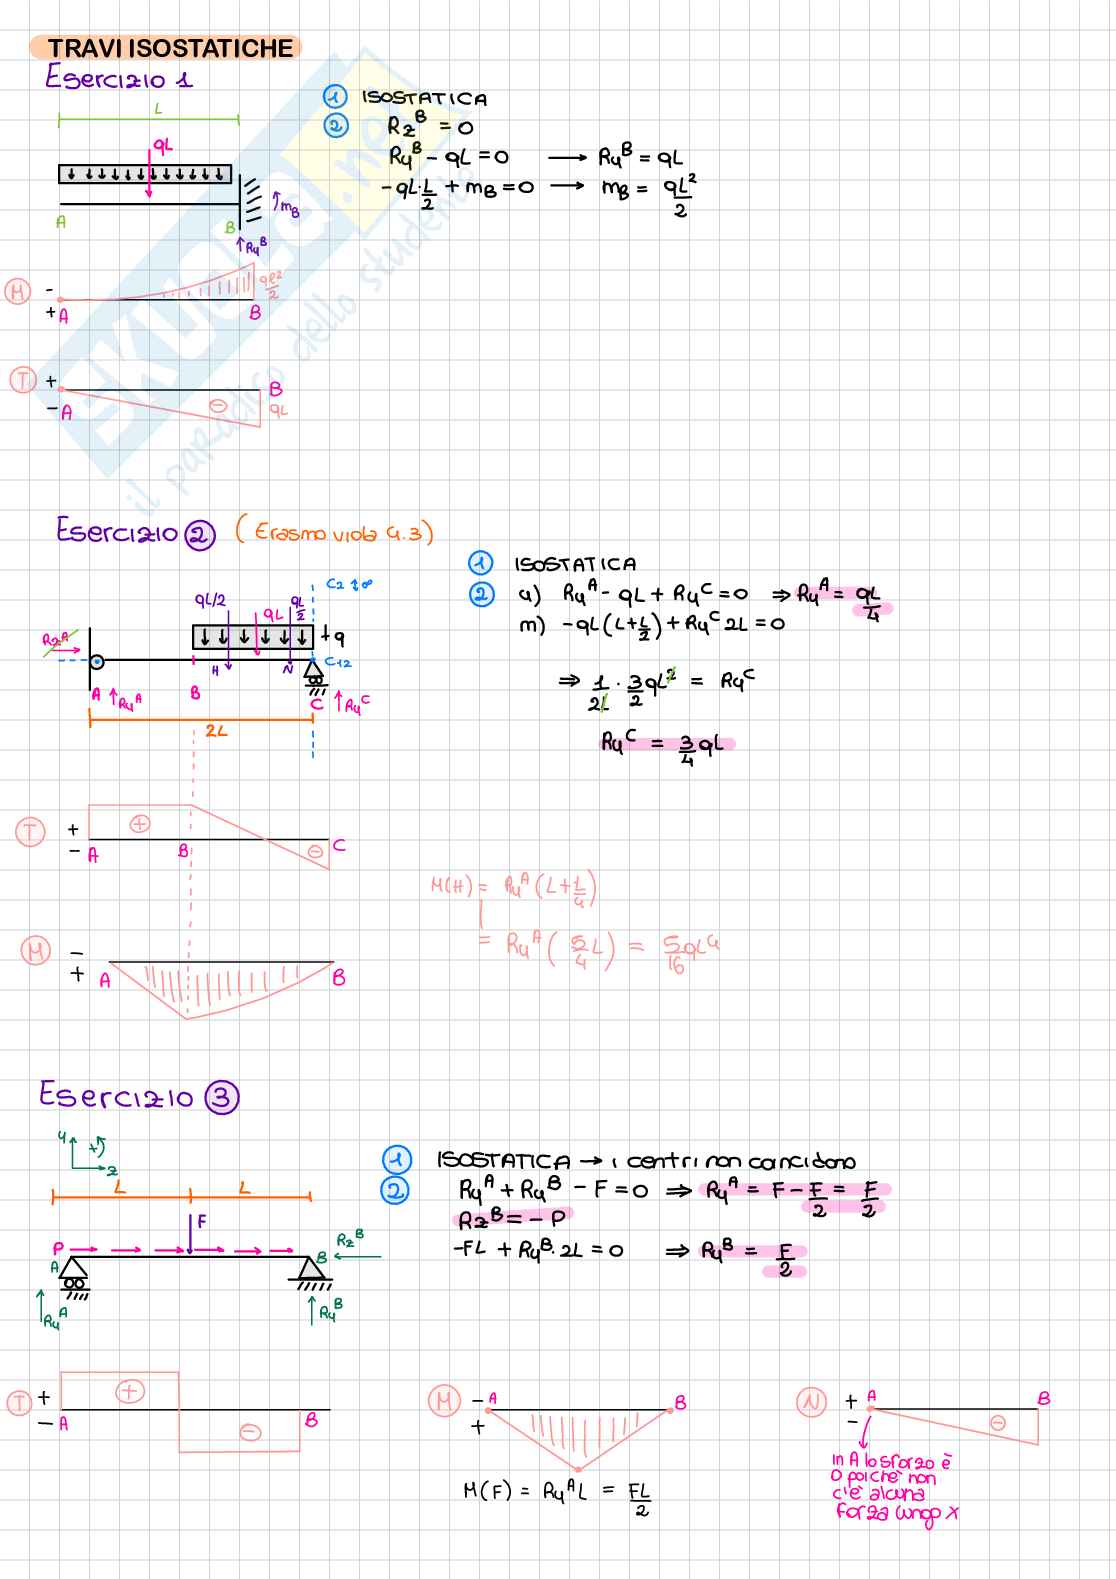 TRAVI ISOSTATICHE
Esercizio 1
L
qL
A
B
mB
Ry^B
① ISOSTATICA
② Rz^B = 0
Ry^B - qL = 0 → Ry^B = qL
-qL·L/2 + mB = 0 → mB = qL²/2
M
-
+
A
B
ql²/2
T
+
-
A
B
⊖
qL
SKUOLA.net
il paradiso dello studente
Esercizio ② (Erasmo viola 4.3)
C2 ↕∞
qL/2
qL
qL/2
q
Rz^A
H
N
C12
A
Ry^A
B
C
Ry^C
2L
① ISOSTATICA
② a) Ry^A - qL + Ry^C = 0 ⇒ Ry^A = qL/4
m) -qL(L+L/2) + Ry^C 2L = 0
⇒ 1/2L · 3/2 qL² = Ry^C
Ry^C = 3/4 qL
T
+
-
A
B
C
⊕
⊖
M
-
+
A
B
M(H) = Ry^A (L+L/4)
= Ry^A (5/4 L) = 5/16 qL^4
Esercizio ③
y
+
z
L
L
F
P
A
B
Rz^B
Ry^A
Ry^B
① ISOSTATICA → i centri non coincidono
② Ry^A + Ry^B - F = 0 ⇒ Ry^A = F - F/2 = F/2
Rz^B = - P
-FL + Ry^B · 2L = 0 ⇒ Ry^B = F/2
T
+
-
A
B
⊕
⊖
M
-
+
A
B
M(F) = Ry^A L = FL/2
N
+
-
A
B
⊖
In A lo sforzo è
0 poichè non
c'è alcuna
forza lungo x